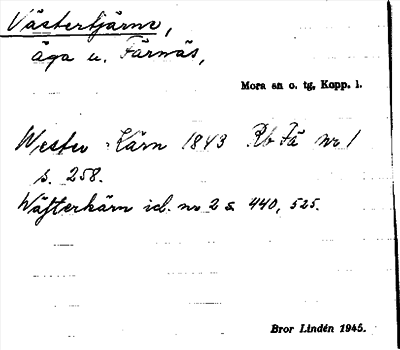 Västertjärne,
äga u. Färnäs,
Mora sn o. tg, Kopp. l.
Wester Kärn 1843 Rb Fä nr 1
s. 258.
Wästerkärn ibl. nr 2 s. 440, 525.
Bror Lindén 1945.